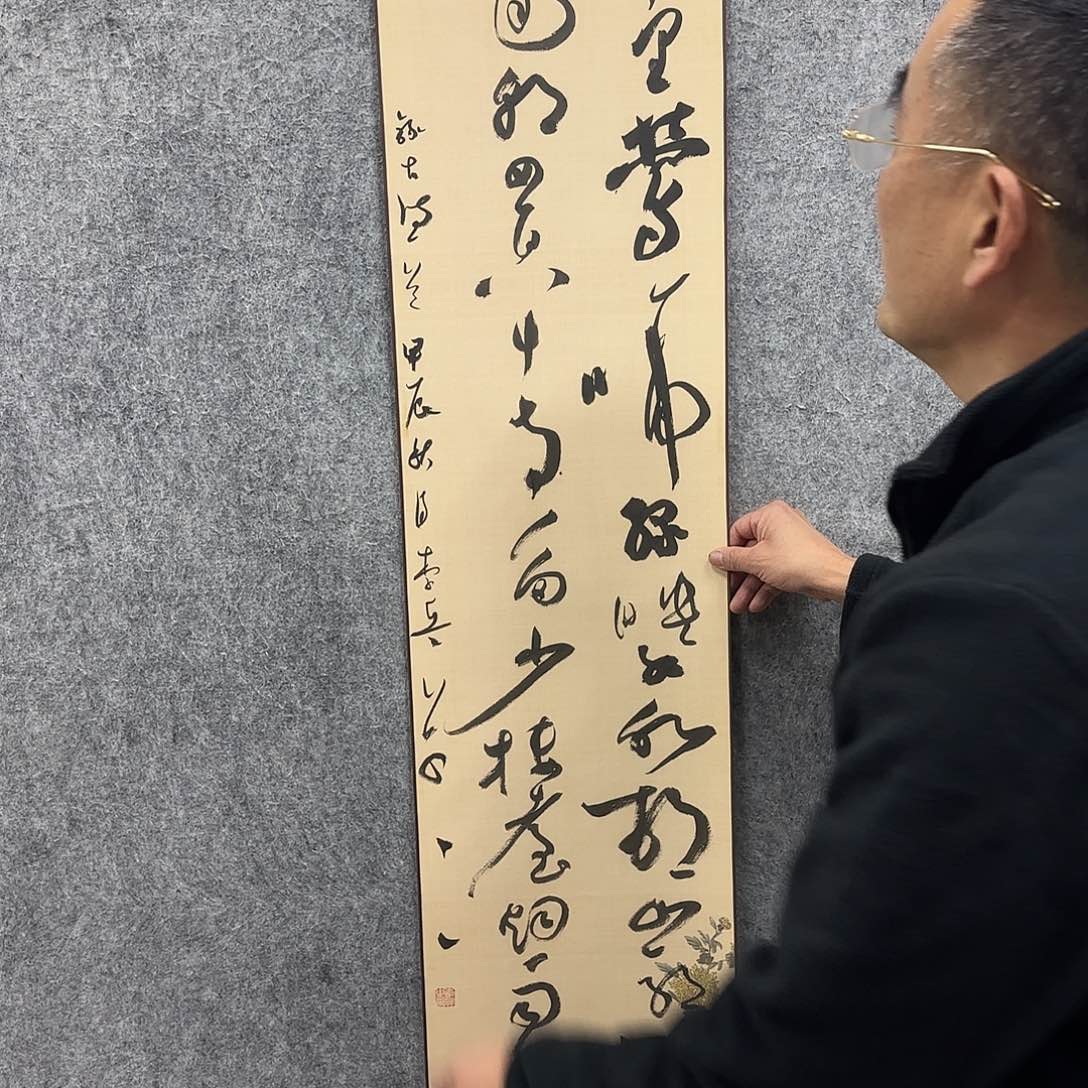 里鶯啼綠映紅水村山郭
南朝四百八十寺多少樓臺烟雨
錄古詩一首甲辰秋月李兵